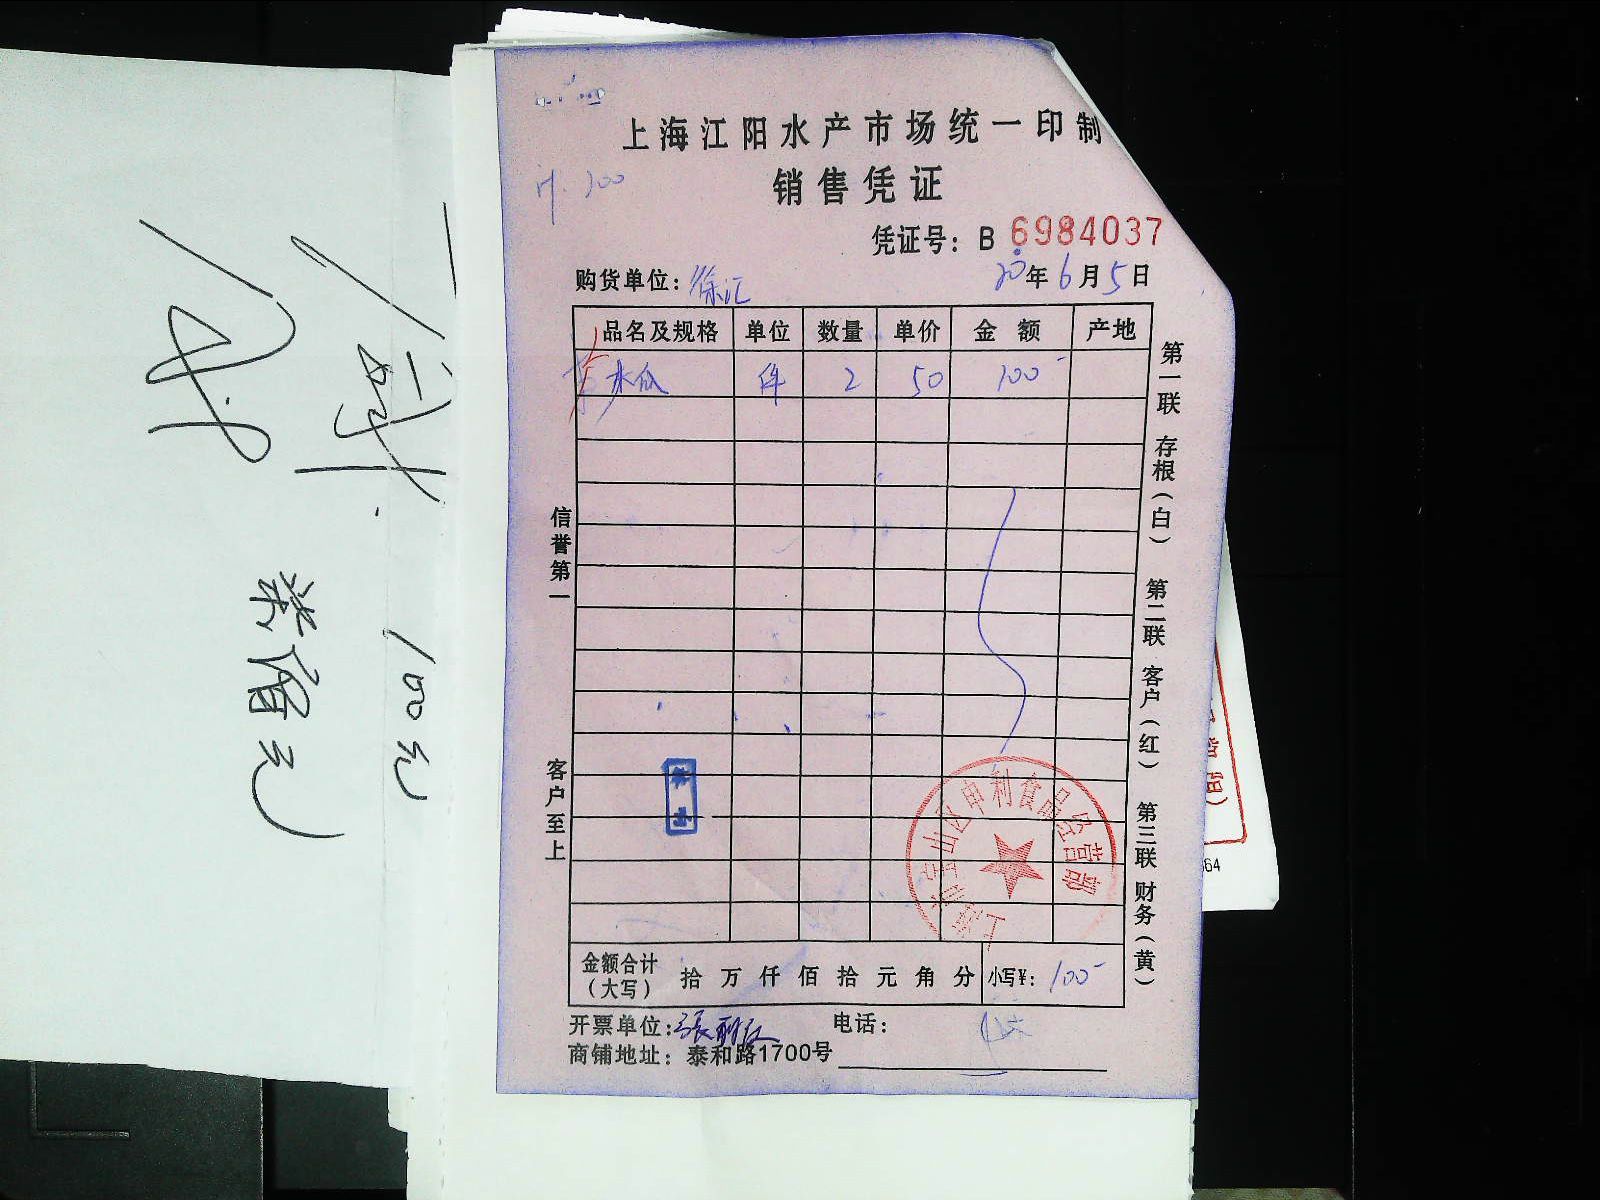 上海江阳水产市场统一印制
销售凭证
凭证号：B 6984037
购货单位：徐汇 20年6月5日
品名及规格 单位 数量 单价 金额 产地
木瓜 件 2 50 100
信誉第一
客户至上
第一联 存根（白） 第二联 客户（红） 第三联 财务（黄）
上海市宝山区申利食品经营部
金额合计（大写） 拾 万 仟 佰 拾 元 角 分 小写¥：100
开票单位：张丽红 电话：
商铺地址：泰和路1700号
100元
64